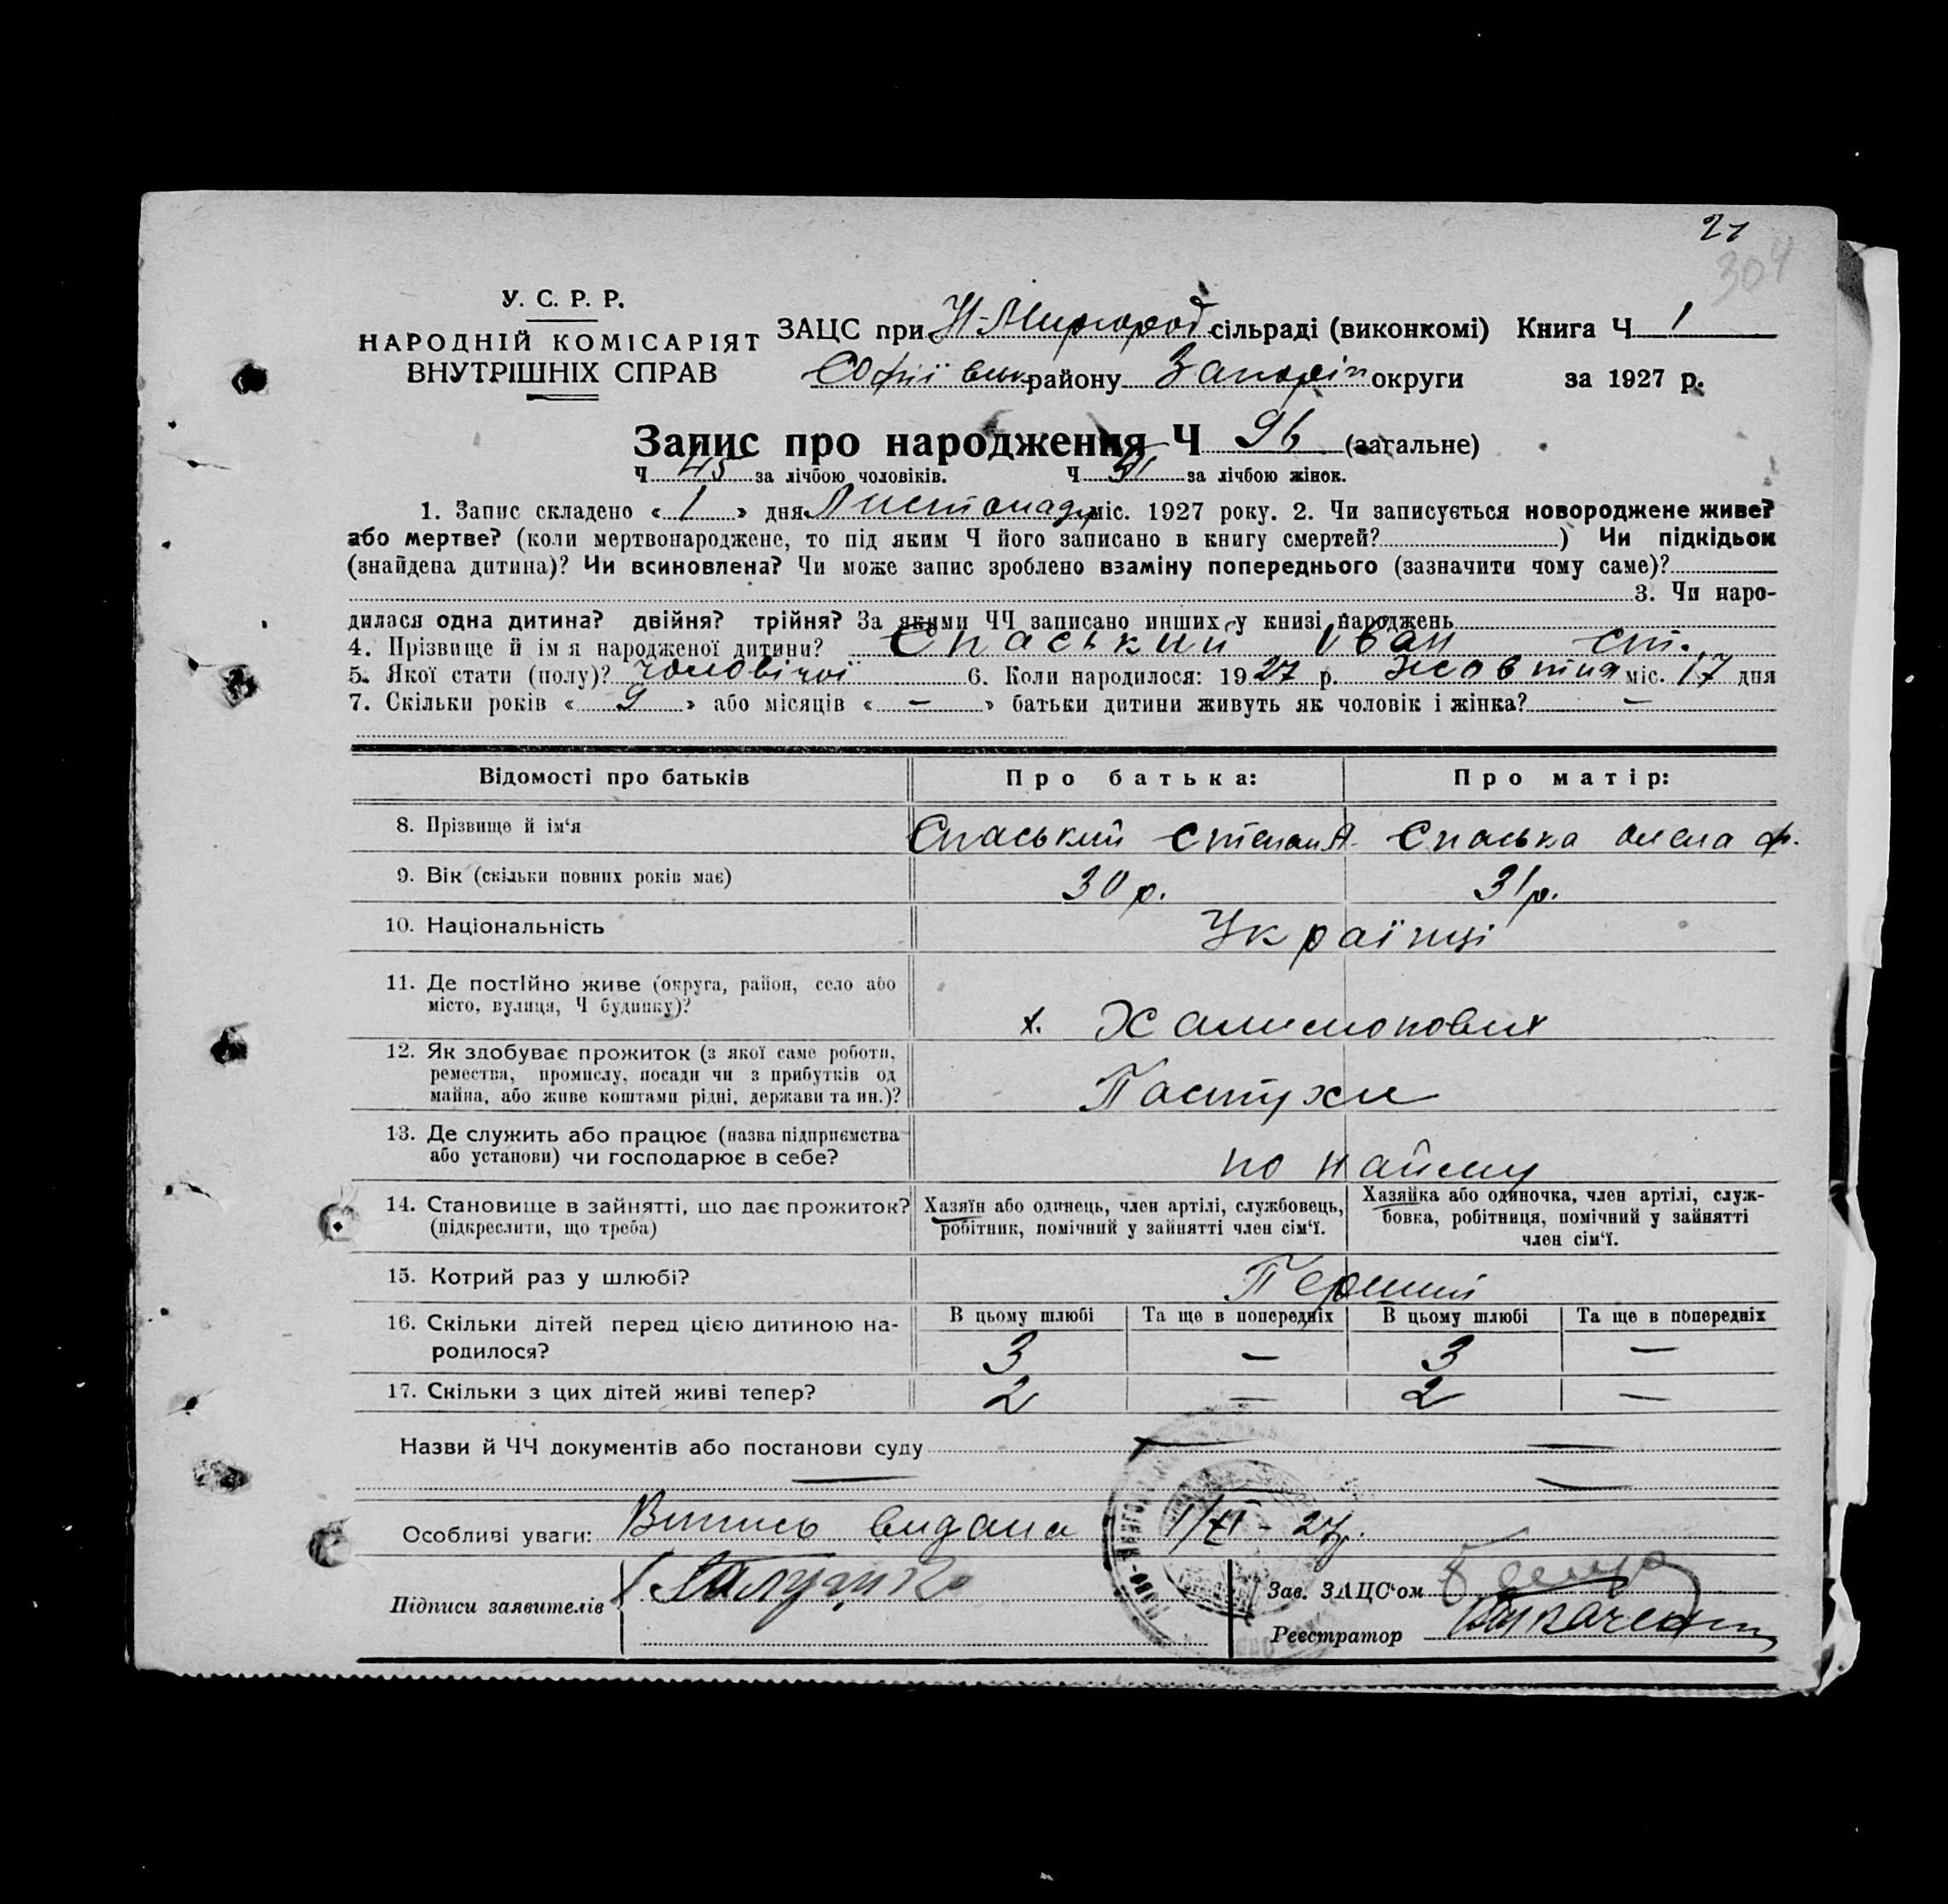 21
304
У. С. Р. Р.
НАРОДНІЙ КОМІСАРІЯТ
ВНУТРІШНІХ СПРАВ
ЗАЦС при Н-Миргород сільраді (виконкомі) Книга Ч 1
Софіївськ району Запоріж округи за 1927 р.
Запис про народження Ч 96 (загальне)
Ч 45 за лічбою чоловіків. Ч 51 за лічбою жінок.
1. Запис складено « 1 » дня Листопада міс. 1927 року. 2. Чи записується новороджене живе?
або мертве? (коли мертвонароджене, то під яким Ч його записано в книгу смертей? ) Чи підкідьок
(знайдена дитина)? Чи всиновлена? Чи може запис зроблено взаміну попереднього (зазначити чому саме)?
3. Чи наро-
дилася одна дитина? двійня? трійня? За якими ЧЧ записано инших у книзі народжень
4. Прізвище й ім я народженої дитини? Спаський Іван Ст.
5. Якої стати (полу)? чоловічої 6. Коли народилося: 1927 р. жовтня міс. 17 дня
7. Скільки років « 9 » або місяців « – » батьки дитини живуть як чоловік і жінка? –
Відомості про батьків Про батька: Про матір:
8. Прізвище й ім‘я Спаський Степан А. Спаська Олена Ф.
9. Вік (скільки повних років має) 30 р. 31 р.
10. Національність Українці
11. Де постійно живе (округа, район, село або
місто, вулиця, Ч будинку)? х.
12. Як здобуває прожиток (з якої саме роботи,
ремества, промислу, посади чи з прибутків од
майна, або живе коштами рідні, держави та ин.)? Пастухи
13. Де служить або працює (назва підприємства
або установи) чи господарює в себе? по найму
14. Становище в зайнятті, що дає прожиток? Хазяїн або одинець, член артілі, службовець, Хазяйка або одиночка, член артілі, служ-
(підкреслити, що треба) робітник, помічний у зайнятті член сім‘ї. бовка, робітниця, помічний у зайнятті
член сім‘ї.
15. Котрий раз у шлюбі? Перший
16. Скільки дітей перед цією дитиною на- В цьому шлюбі Та ще в попередніх В цьому шлюбі Та ще в попередніх
родилося? 3 – 3 –
17. Скільки з цих дітей живі тепер? 2 – 2 –
Назви й ЧЧ документів або постанови суду
Особливі уваги: Випись видана 1/XI - 27 р.
Підписи заявителів Зав. ЗАЦС‘ом
Реестратор